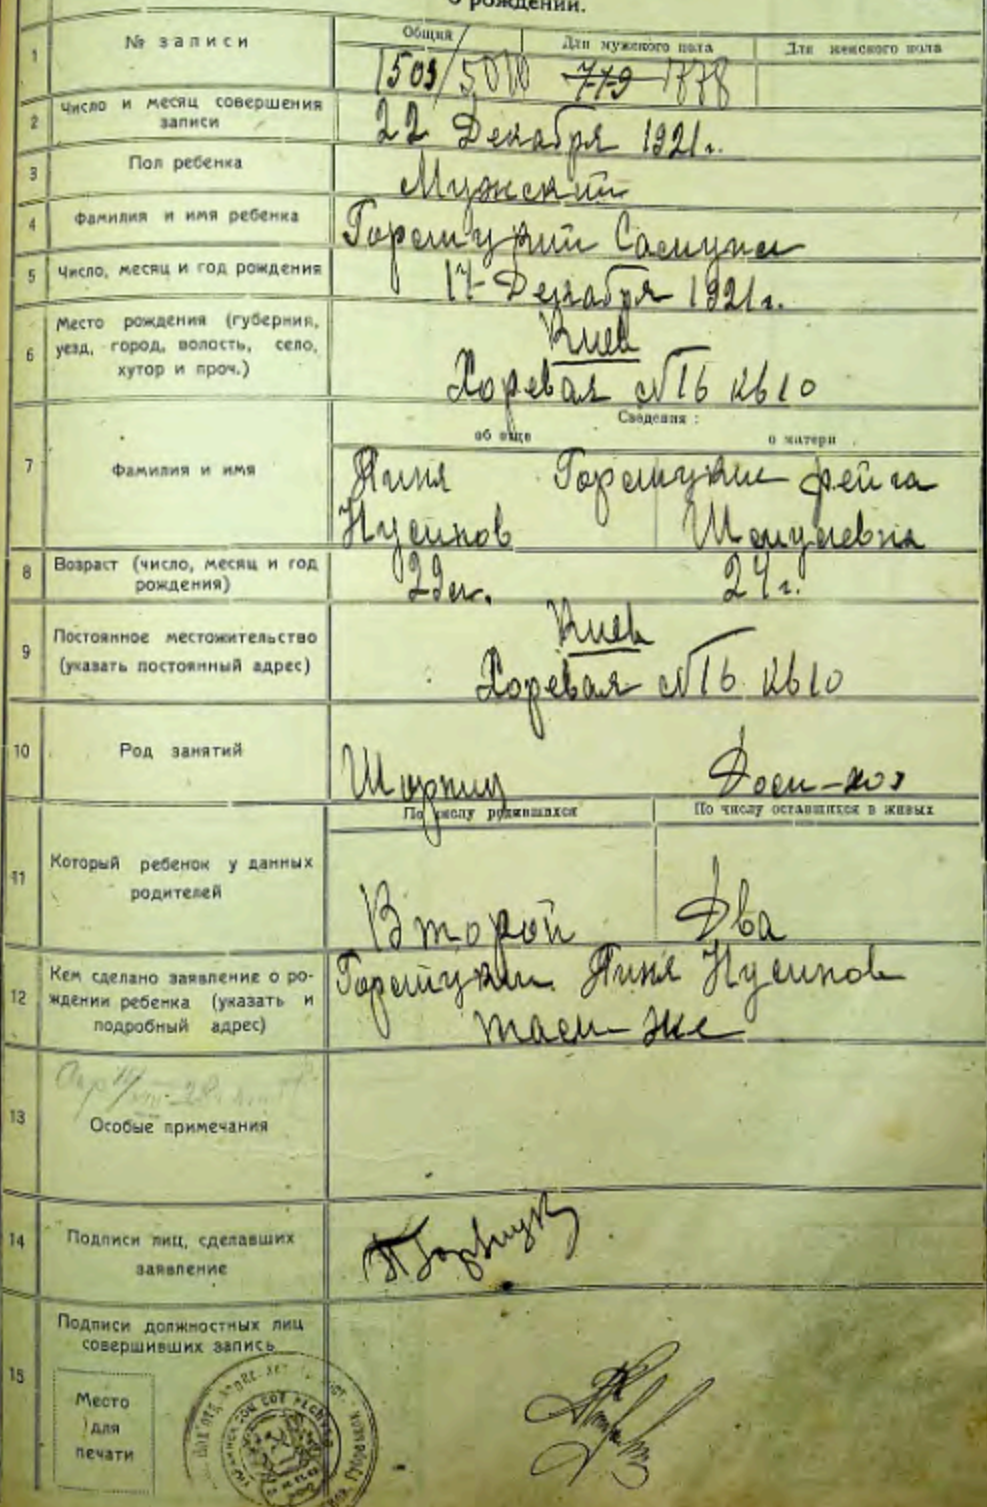 о рождении.
1 № записи Общий Для мужского пола Для женского пола
1509/5010 719 1878
2 Число и месяц совершения записи
22 Декабря 1921 г.
3 Пол ребенка Мужский
4 Фамилия и имя ребенка
5 Число, месяц и год рождения 17 Декабря 1921 г.
6 Место рождения (губерния,
уезд, город, волость, село,
хутор и проч.)
Киев
Хоревая №16 кв 10
Сведения:
об отце о матери
7 Фамилия и имя
Пиня Фейга
Нусинов Шмулевна
8 Возраст (число, месяц и год
рождения)
24 г.
9 Постоянное местожительство
(указать постоянный адрес)
Киев
Хоревая №16 кв 10
10 Род занятий
Дом-хоз
По числу родившихся По числу оставшихся в живых
11 Который ребенок у данных
родителей
Второй Два
12 Кем сделано заявление о ро-
ждении ребенка (указать и
подробный адрес)
Пиня Нусинов
там-же
13 Особые примечания
14 Подписи лиц, сделавших
заявление
15 Подписи должностных лиц
совершивших запись
Место
для
печати